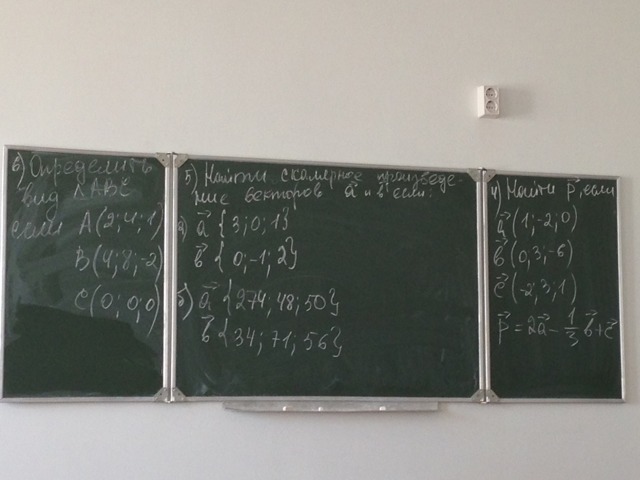 6) Определить
вид ΔABC
если A(2; 4; 1)
B(4; 8; -2)
C(0; 0; 0)
5) Найти скалярное произведе-
ние векторов a⃗ и b⃗ если:
а) a⃗ {3; 0; 1}
b⃗ {0; -1; 2}
б) a⃗ {274; 48; 50}
b⃗ {34; 71; 56}
4) Найти p⃗, если
a⃗ (1; -2; 0)
b⃗ (0; 3; -6)
c⃗ (-2; 3; 1)
p⃗ = 2a⃗ - 1/3 b⃗ + c⃗